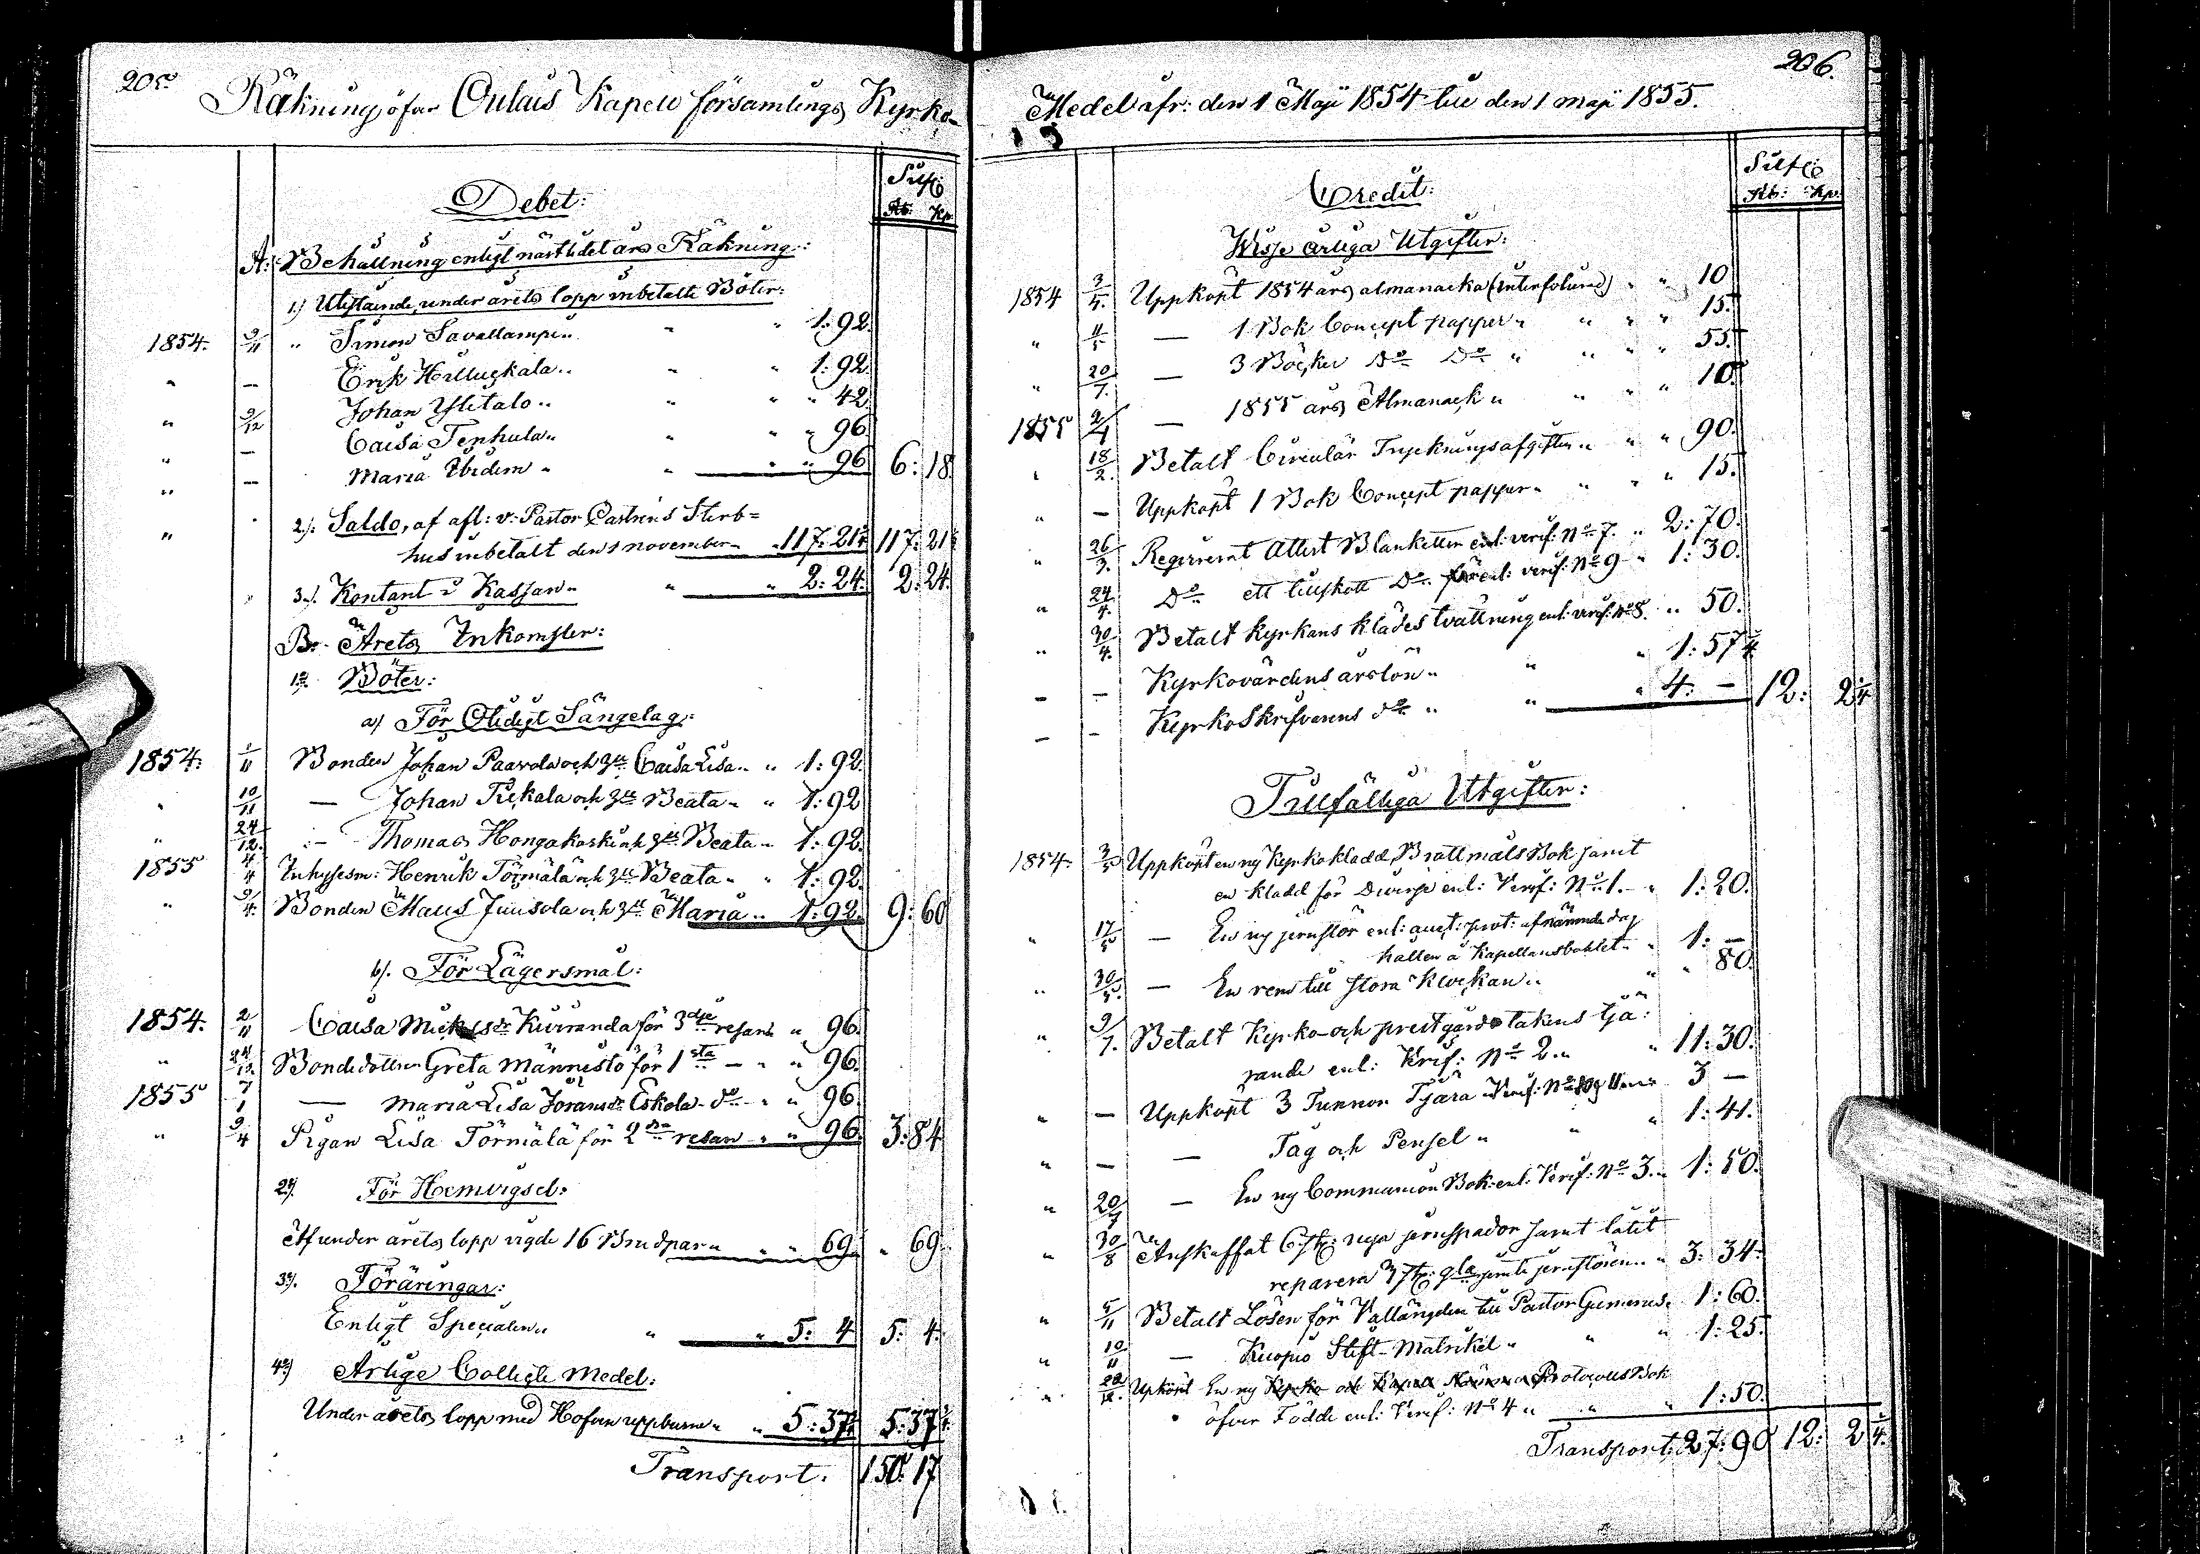 205.
Räkning öfver Oulais Kapell församlings Kyrko-
Debet:
Silfv:
Rb: Kp
A: Behållning enligt nästlidet års Räkning:
1.) Utestående, under årets lopp inbetalte Böter:
1854. 9/11 " Simon Savallampi " " " 1: 92.
" — Erik Hilluskala " " " 1: 92.
" 9/12 Johan Ylitalo " " " " 42.
" — Caisa Tenhula " " " " 96.
" — Maria Ibidem " " " " 96. 6: 18.
" 2.) Saldo, af afl: v: Pastor Castréns Sterb=
hus inbetalt den 1 november " " 117: 21 117: 21
3.) Kontant i Kassan " " " 2: 24. 2: 24.
B: Årets Inkomster:
1o Böter:
a) För Otidigt Sängelag:
1854: 1/11 Bonden Johan Paavola och hu Caisa Lisa " " 1: 92.
" 10/11 — Johan Piekala och hu Beata " " 1: 92
" 24/12 — Thomas Hongakoski och hu Beata " 1: 92.
1855 4/4 Inhysesm: Henrik Törmälä och hu Beata " " 1: 92.
" 9/4 Bonden Maus Juusola och hu Maria " 1: 92. 9: 60
b). För Lägersmål:
1854. 2/11 Caisa Kuiranda för 3dje resan " 96.
" 24/12 Bondedottren Greta Männistö för 1sta — " " 96.
1855 7/1 — Maria Lisa Eskola do " " 96.
" 9/4 Pigan Lisa Törmälä för 2dra resan " " 96. 3: 84
2o). För Hemvigsel:
Af under årets lopp vigde 16 Brudpar " " " 69. " 69.
3o). Föräringar:
Enligt Specialen " " " 5: 4 5: 4.
4o) Årlige Colligle Medel:
Under årets lopp med Håfven uppburne " " 5: 37 5: 37
Transport. 150: 17
206.
Medel ifr: den 1 Maji 1854 till den 1 maji 1855.
Credit:
Silfv:
Rb: Kp:
Wisse årliga Utgifter:
1854 3/5. Uppköpt 1854 års almanacka (interfolierad) " " 10
" 11/5 — 1 Bok Concept papper " " " " 15.
" 20/7. — 3 Böcker Do Do " " " " 55.
1855 — 1855 års Almanack " " " " 10.
" 18/2. Betalt Circulär Tryckningsafgiften " " " 90.
" — Uppköpt 1 Bok Concept papper " " " " 15.
" 26/3. Reqvirerat Attest Blanketter enl: verif: No 7. " 2: 70.
" 24/4. Do ett tillskott Do enl: verif: No 9 " 1: 30.
" 30/4. Betalt Kyrkans kläders tvättning enl: verif: No 8. " 50.
— — Kyrkovärdens årslön " " " 1: 57
— — Kyrkoskrifvarens do " " " 4: — 12: 2
Tillfälliga Utgifter:
1854. 3/5 Uppköpt en ny Kyrko kladd, Brottmåls Bok samt
en kladd för Diverse enl: Verif: No 1. " 1: 20.
" 17/5 — En ny jernstör enl: auct: prot: af nämnde dag
hållen å Kapellansbohlet " " 1: —
" 30/5. — En rem till Stora Klockan " " " 80.
" 9/7. Betalt Kyrko- och prestgårdstakens tjä:
rande enl: Verif: No 2. " " 11: 30.
" — Uppköpt 3 Tunnor Tjära 3 —
" — — Tåg och Pensel " " " 1: 41.
" — En ny Communion Bok enl: Verif: No 3. " 1: 50.
" 30/8 Anskaffat 6 st: nya jernspador samt låtit
reparera 3 st: gla samt jernstören " 3: 34.
" 5/11 Betalt Lösen för Vallängden till Pastor Gumerus " 1: 60.
" 12/11 — Kuopio Stift-Matrikel " " " 1: 25.
" 22/12. Upköpt En ny Protocolls Bok
öfver Födde enl: Verif: No 4 " " " 1: 50.
Transport: 27: 90 12: 2